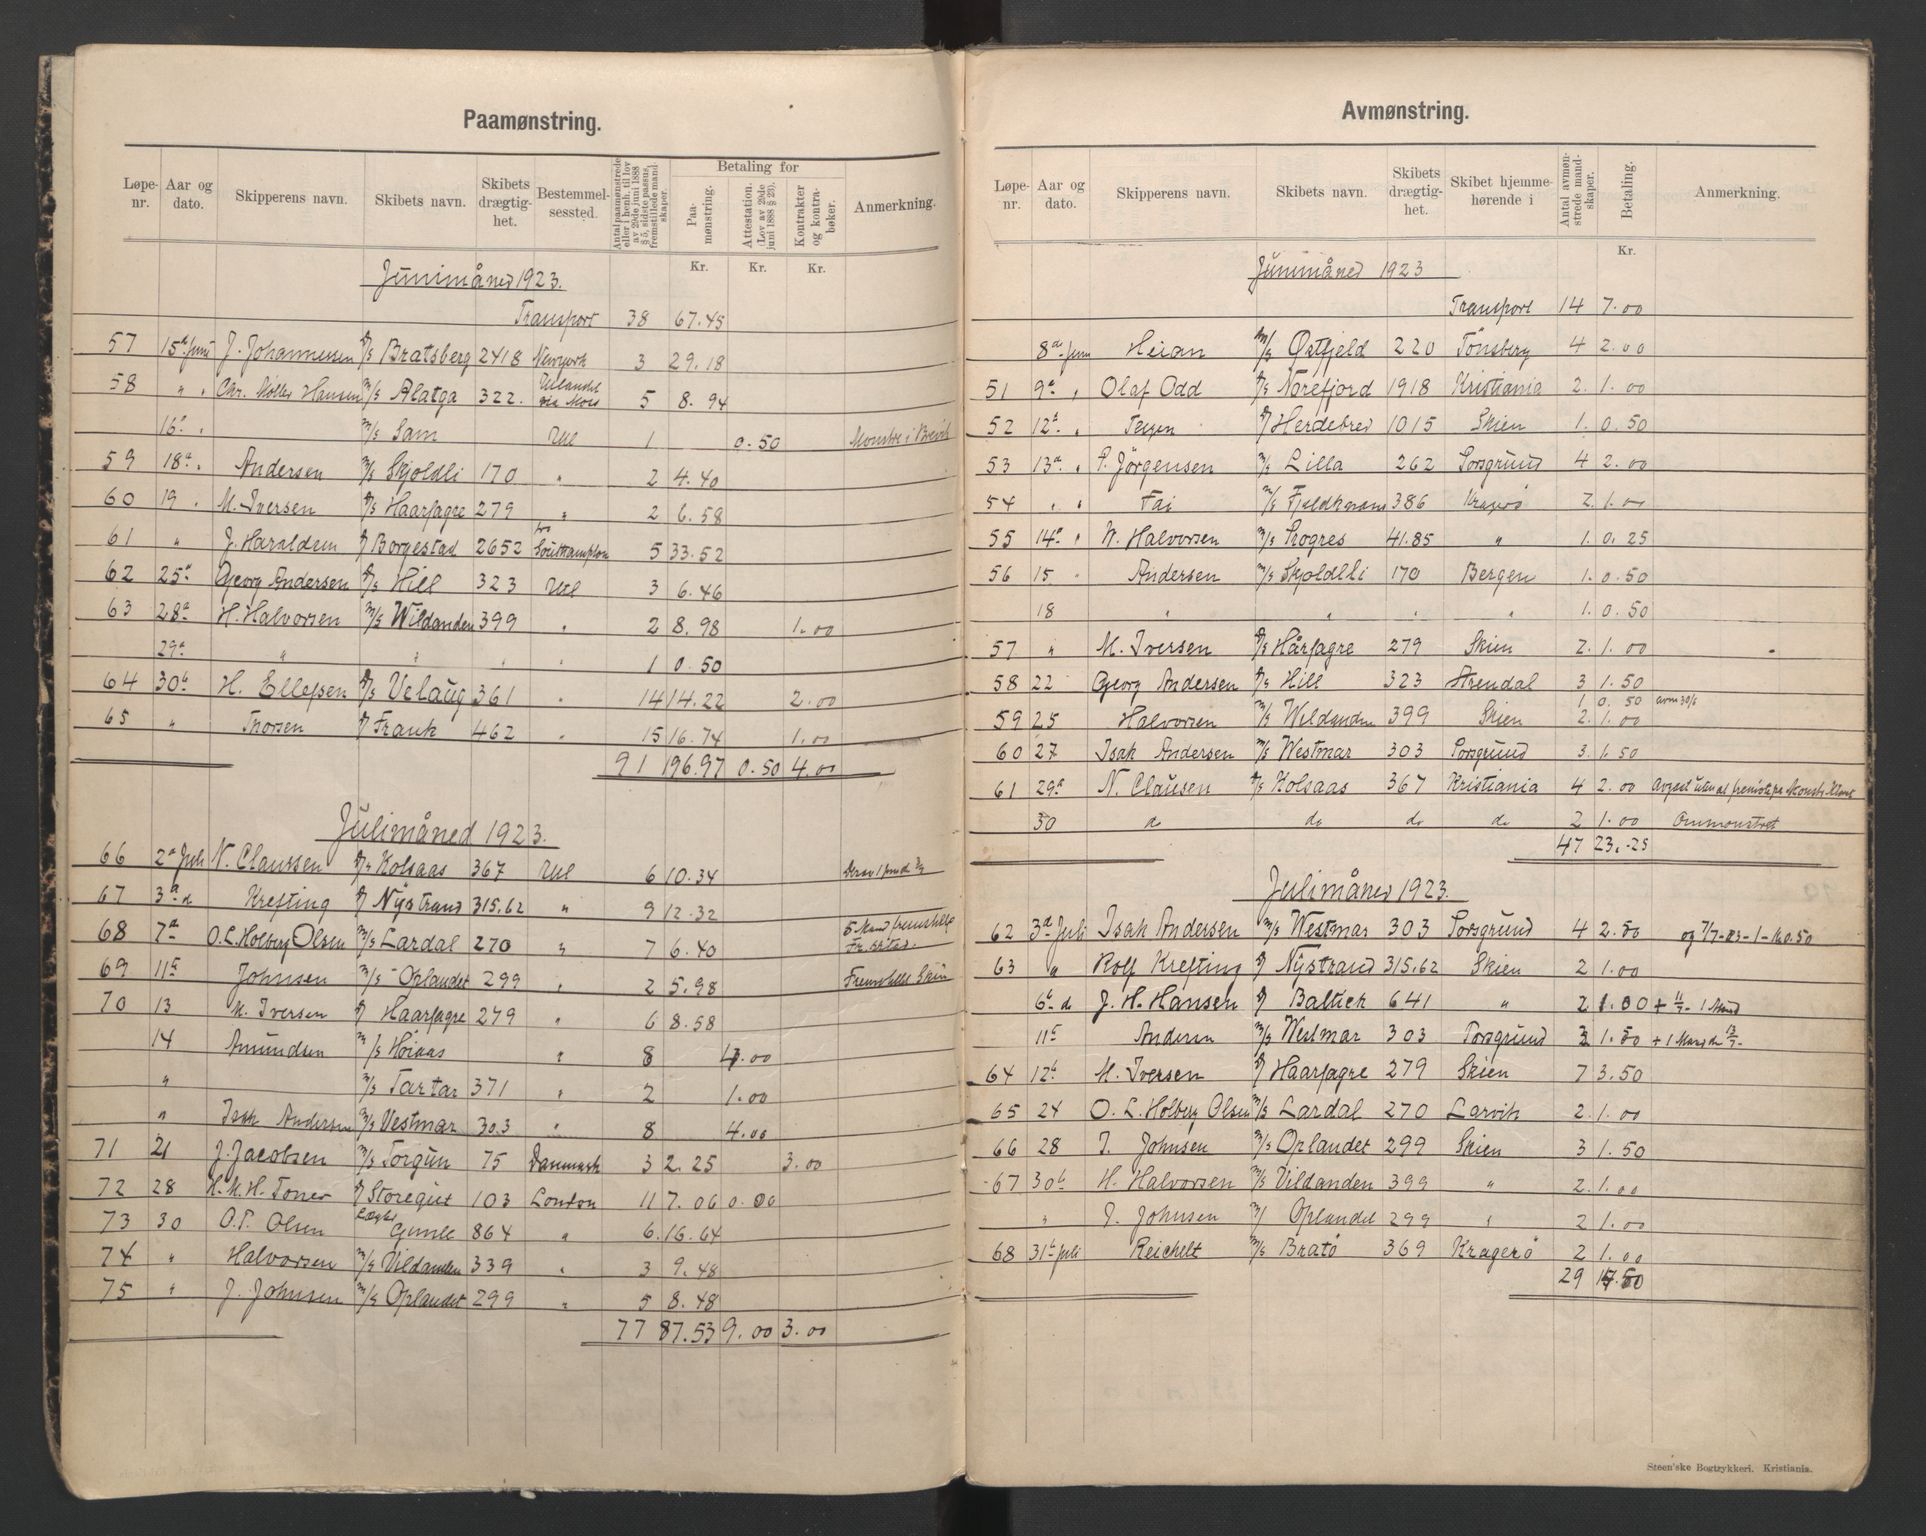 Paamønstring.
Løpe-nr. Aar og dato. Skipperens navn. Skibets navn. Skibets drægtighet. Bestemmelsessted. Antal paamønstrede eller i henh. til lov av 29de juni 1888 § 5, sidste passus, fremstillede mandskaper. Betaling for Paamønstring. Attestation. (Lov av 29de juni 1888 § 23). Kontrakter og kontrabøker. Anmerkning.
Kr. Kr. Kr.
Junimåned 1923.
Transport 38 67.45
57 15de Juni J. Johannessen D/S Bratsberg 2418 Newyork 3 29.18
58 " " Chr. Møller Hansen M/S Alatga 322. Utlandet via Moss 5 8.94
16de " M/S Sam Utl 1 0.50 Mønstre i Brevik
59 18de " Andersen M/S Skjoldli 170 " 2 4.40
60 19 " M. Iversen D/S Haarfagre 279 " 2 6.58
61 " J. Haraldsen D/ Borgestad 2652 Southampton 5 33.52
62 25de Georg Andersen D/S Hill 323 Utl 3 6.46
63 28de H. Halvorsen M/S Wildanden 399 " 2 8.98 1.00
29de " " " " 1 0.50
64 30te H. Ellefsen D/S Velaug 361 " 14 14.22 2.00
65 " Thorsen D/ Frank 462 " 15 16.74 1.00
91 196.97 0.50 4.00
Julimåned 1923.
66 2de Juli N. Claussen D/S Kolsaas 367 Utl 6 10.34
67 3de d Krefting D/ Nystrand 315,62 " 9 12.32
68 7de O. L. Holberg Olsen M/S Lardal 270 " 7 6.40 5 Mand fremstille
69 11te Johnsen M/S Oplandet 299 " 2 5.98 Fremstille Skien
70 13 M. Iversen D/ Haarfagre 279 " 6 8.58
14 Amundsen M/S Høiaas " 8 4.00
" M/S Tartar 371 " 2 1.00
" Isak Andersen M/S Vestmar 303 " 8 4.00
71 21 J. Jacobsen M/S Torgun 75 Danmark 3 2.25 3.00
72 28 H. M. H. Toner D/ Storegut 103 London 11 7.06 0.00
73 30 O. T. Olsen Gunle 864 " 6. 16.64
74 " Halvorsen M/S Vildanden 339 " 3 9.48
75 " J. Johnsen M/S Oplandet 299 " 5 8.48
77 87.53 9.00 3.00
Avmønstring.
Løpe-nr. Aar og dato. Skipperens navn. Skibets navn. Skibets drægtighet. Skibet hjemmehørende i Antal avmønstrede mandskaper. Betaling. Anmerkning.
Kr.
Junimåned 1923
Transport 14 7.00
8de Juni Heian M/S Østfjeld 220 Tönsberg 4 2.00
51 9de " Olaf Odd D/S Norefjord 1918 Kristiania 2. 1.00
52 12te " Tergen D/ Herdebred 1015 Skien 1. 0.50
53 13de " P. Jörgensen M/S Lilla 262 Porsgrund 4 2.00
54 " " Fai M/S 386 Kragerø 2. 1.00
55 14de " W. Halvorsen M/S Progres 41.85 " 1. 0.25
56 15 " Andersen M/S Skjoldlli 170 Bergen 1. 0.50
18 " " " " 1. 0.50
57 " M. Iversen D/S Hårfagre 279 Skien 2. 1.00
58 22 Georg Andersen D/S Hill 323 Arendal 3 1.50
1 0.50 avm 30/6
59 25 Halvorsen M/S Wildanden 399 Skien 2. 1.00
60 27 Isak Andersen M/S Westmar 303 Porsgrund 3. 1.50
61 29de N. Clausen D/S Kolsaas 367 Kristiania 4 2.00
30 do do do do 2 1.00 Ommønstret
47 23.-25
Julimåned 1923.
62 3de Juli Isak Andersen M/S Westmar 303 Porsgrund 4 2.50 og 7/7-23-1-k 0.50
63 " Rolf Krefting D/ Nystrand 315.62 Skien 2 1.00
6te d J. H. Hansen D/ Baltick 641 " 2 1.00 + 11/7- 1 Mand
11te Andersen M/S Westmar 303 Porsgrund 3 1.50 + 1 Mand 13/7-
64 12te M. Iversen D/ Haarfagre 279 Skien 7 3.50
65 24 O. L. Holberg Olsen M/S Lardal 270 Larvik 2. 1.00
66 28 J. Johnsen M/S Oplandet 299 Skien 3 1.50
67 30te H. Halvorsen M/S Vildanden 399 " 2. 1.00
" J. Johnsen M/ Oplandet 299 " 2 1.00
68 31te Juli Reichelt M/S Bratö 369 Kragerø 2 1.00
29
Steen'ske Bogtrykkeri. Kristiania.